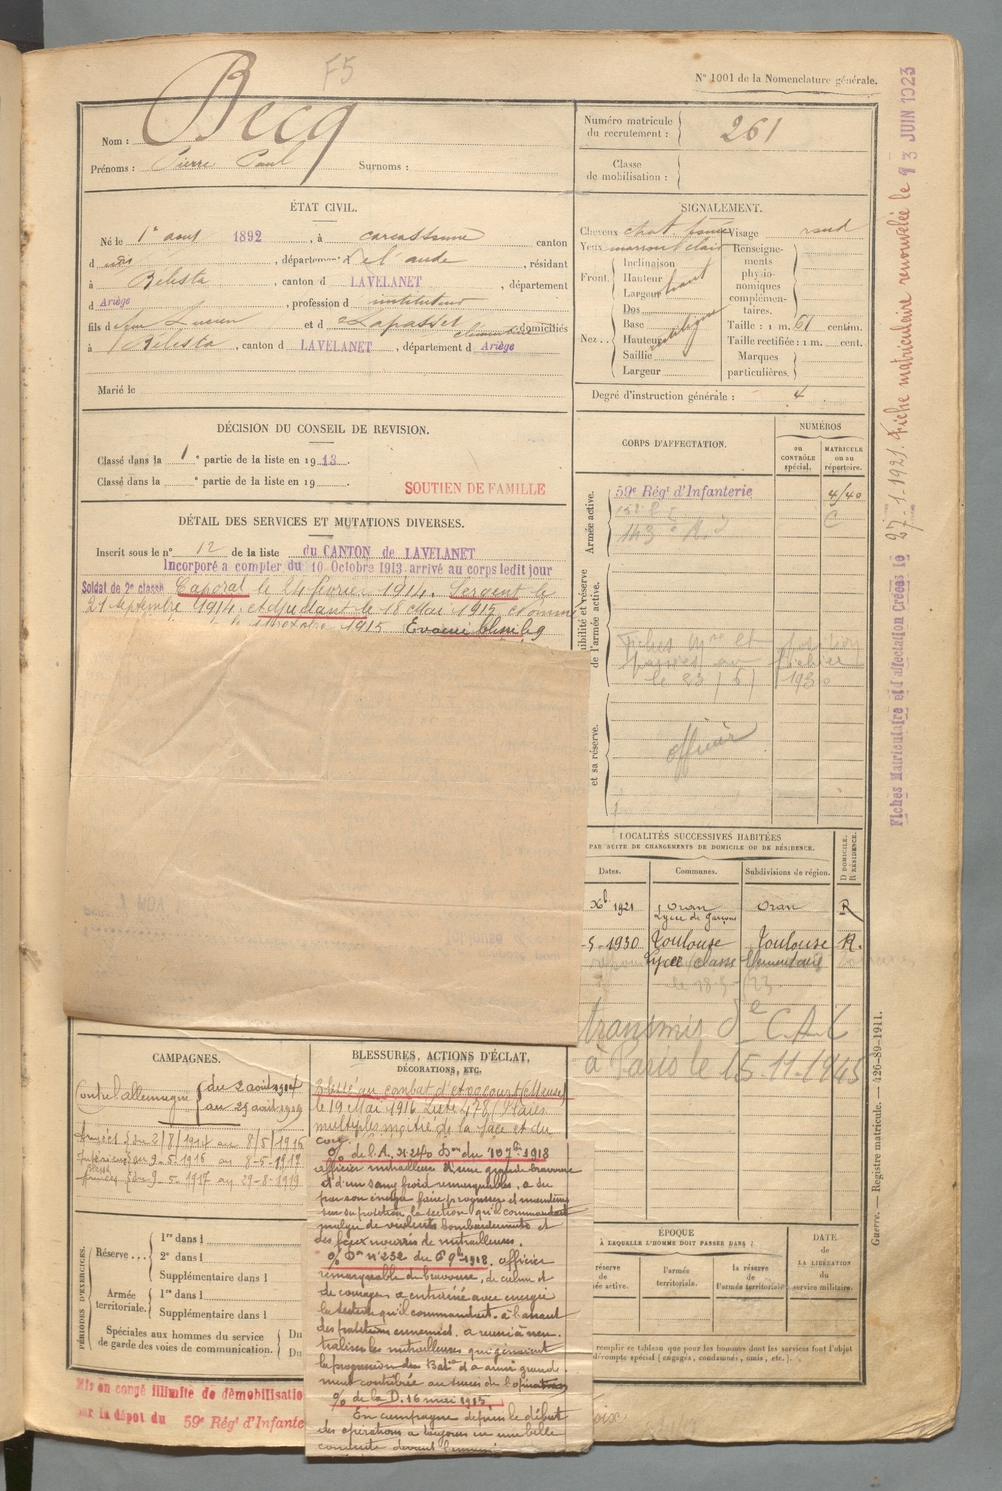 F5
N° 1001 de la Nomenclature générale.
Nom : Becq
Prénoms : Pierre Paul Surnoms :
Numéro matricule du recrutement : 261
Classe de mobilisation :
ÉTAT CIVIL.
Né le 1er août 1892, à Carcassonne canton
d dudit, département de l'aude, résidant
à Bélesta, canton d LAVELANET, département
d Ariège, profession d instituteur
fils d feu Lucien et d Lapasset clémentine domiciliés
à Bélesta, canton d LAVELANET, département d Ariège
Marié le
SIGNALEMENT.
Cheveux chat. foncé Visage rond
Yeux marron clair
Front. Inclinaison
Hauteur haut
Largeur
Nez . . Dos
Base
Hauteur rectiligne
Saillie
Largeur
Renseignements physionomiques complémentaires.
Taille : 1 m. 61 centim.
Taille rectifiée : 1 m. cent.
Marques particulières.
Degré d'instruction générale : 4
DÉCISION DU CONSEIL DE REVISION.
Classé dans la 1e partie de la liste en 1913.
Classé dans la e partie de la liste en 19 .
SOUTIEN DE FAMILLE
DÉTAIL DES SERVICES ET MUTATIONS DIVERSES.
Inscrit sous le n° 12 de la liste du CANTON de LAVELANET
Incorporé a compter du 10 Octobre 1913 arrivé au corps ledit jour
Soldat de 2e classe Caporal le 24 février 1914. Sergent le
21 septembre 1914. adjudant le 18 Mai 1915
1915 Evacué blessé le 9
CORPS D'AFFECTATION.
NUMÉROS
au CONTRÔLE spécial.
MATRICULE ou au répertoire.
Armée active.
59e Régt d'Infanterie
143e R. I
Disponibilité et réserve de l'armée active.
Fiches Mre et position
passées au fichier
le 23/5/1930
et sa réserve.
officier
LOCALITÉS SUCCESSIVES HABITÉES
PAR SUITE DE CHANGEMENTS DE DOMICILE OU DE RÉSIDENCE.
Dates.
Communes.
Subdivisions de région.
D DOMICILE.
R RÉSIDENCE.
Xbre 1921 Oran Oran R
Lycée de Garçons
-5-1930 Toulouse Toulouse R.
Lycée classe élémentaire
le 18-5-
transmis de C.A.C
à Paris le 15-11-1945
CAMPAGNES.
Contre l'allemagne du 2 août 1914
au 29 août 1919
Armées du 2/8/1914 au 8/5/1916
Intérieur blessé du 9-5-1916 au 8-5-1917
Armées du 9-5-1917 au 29-8-1919
BLESSURES, ACTIONS D'ÉCLAT,
DÉCORATIONS, ETC.
Blessé au combat d'Avocourt (Meuse)
le 19 Mai 1916 Liste 478 (Plaies
multiples moitié de la face et du
cou.
O/ de l'A. N° 240 Don du 10 7bre 1918
officier mitrailleur d'une grande bravoure
et d'un sang froid remarquables, a su
par son énergie faire progresser et maintenir
sur sa position la section qu'il commandait
malgré de violents bombardements et
des feux nourris de mitrailleuses.
O/ Don n° 252 du 6 9bre 1918. officier
remarquable de bravoure, de calme et
de courage a entraîné avec énergie
la section qu'il commandait à l'assaut
des positions ennemies. a réussi à neu-
traliser les mitrailleuses qui gênaient
la progression du Baton et a ainsi grande-
ment contribué au succès de l'opération
O/ de la D. 16 mai 1915
En campagne depuis le début
des opérations a toujours eu une belle
conduite devant l'ennemi
PÉRIODES D'EXERCICES.
Réserve . . . 1re dans l
2e dans l
Supplémentaire dans l
Armée territoriale. 1re dans l
Supplémentaire dans l
Spéciales aux hommes du service de garde des voies de communication. Du
Du
ÉPOQUE
À LAQUELLE L'HOMME DOIT PASSER DANS :
DATE de LA LIBÉRATION du service militaire.
réserve de
ée active.
l'armée territoriale.
la réserve de l'armée territoriale
remplir ce tableau que pour les hommes dont les services font l'objet
décompte spécial (engagés, condamnés, omis, etc.).
Mis en congé illimité de démobilisatio
par le dépôt du 59e Régt d'Infante
Guerre. — Registre matricule. — 426-89-1911.
Fiches Matriculaire et d'affectation Créées le 27-1-1921. Fiche matriculaire renouvelée le 13 JUIN 1923